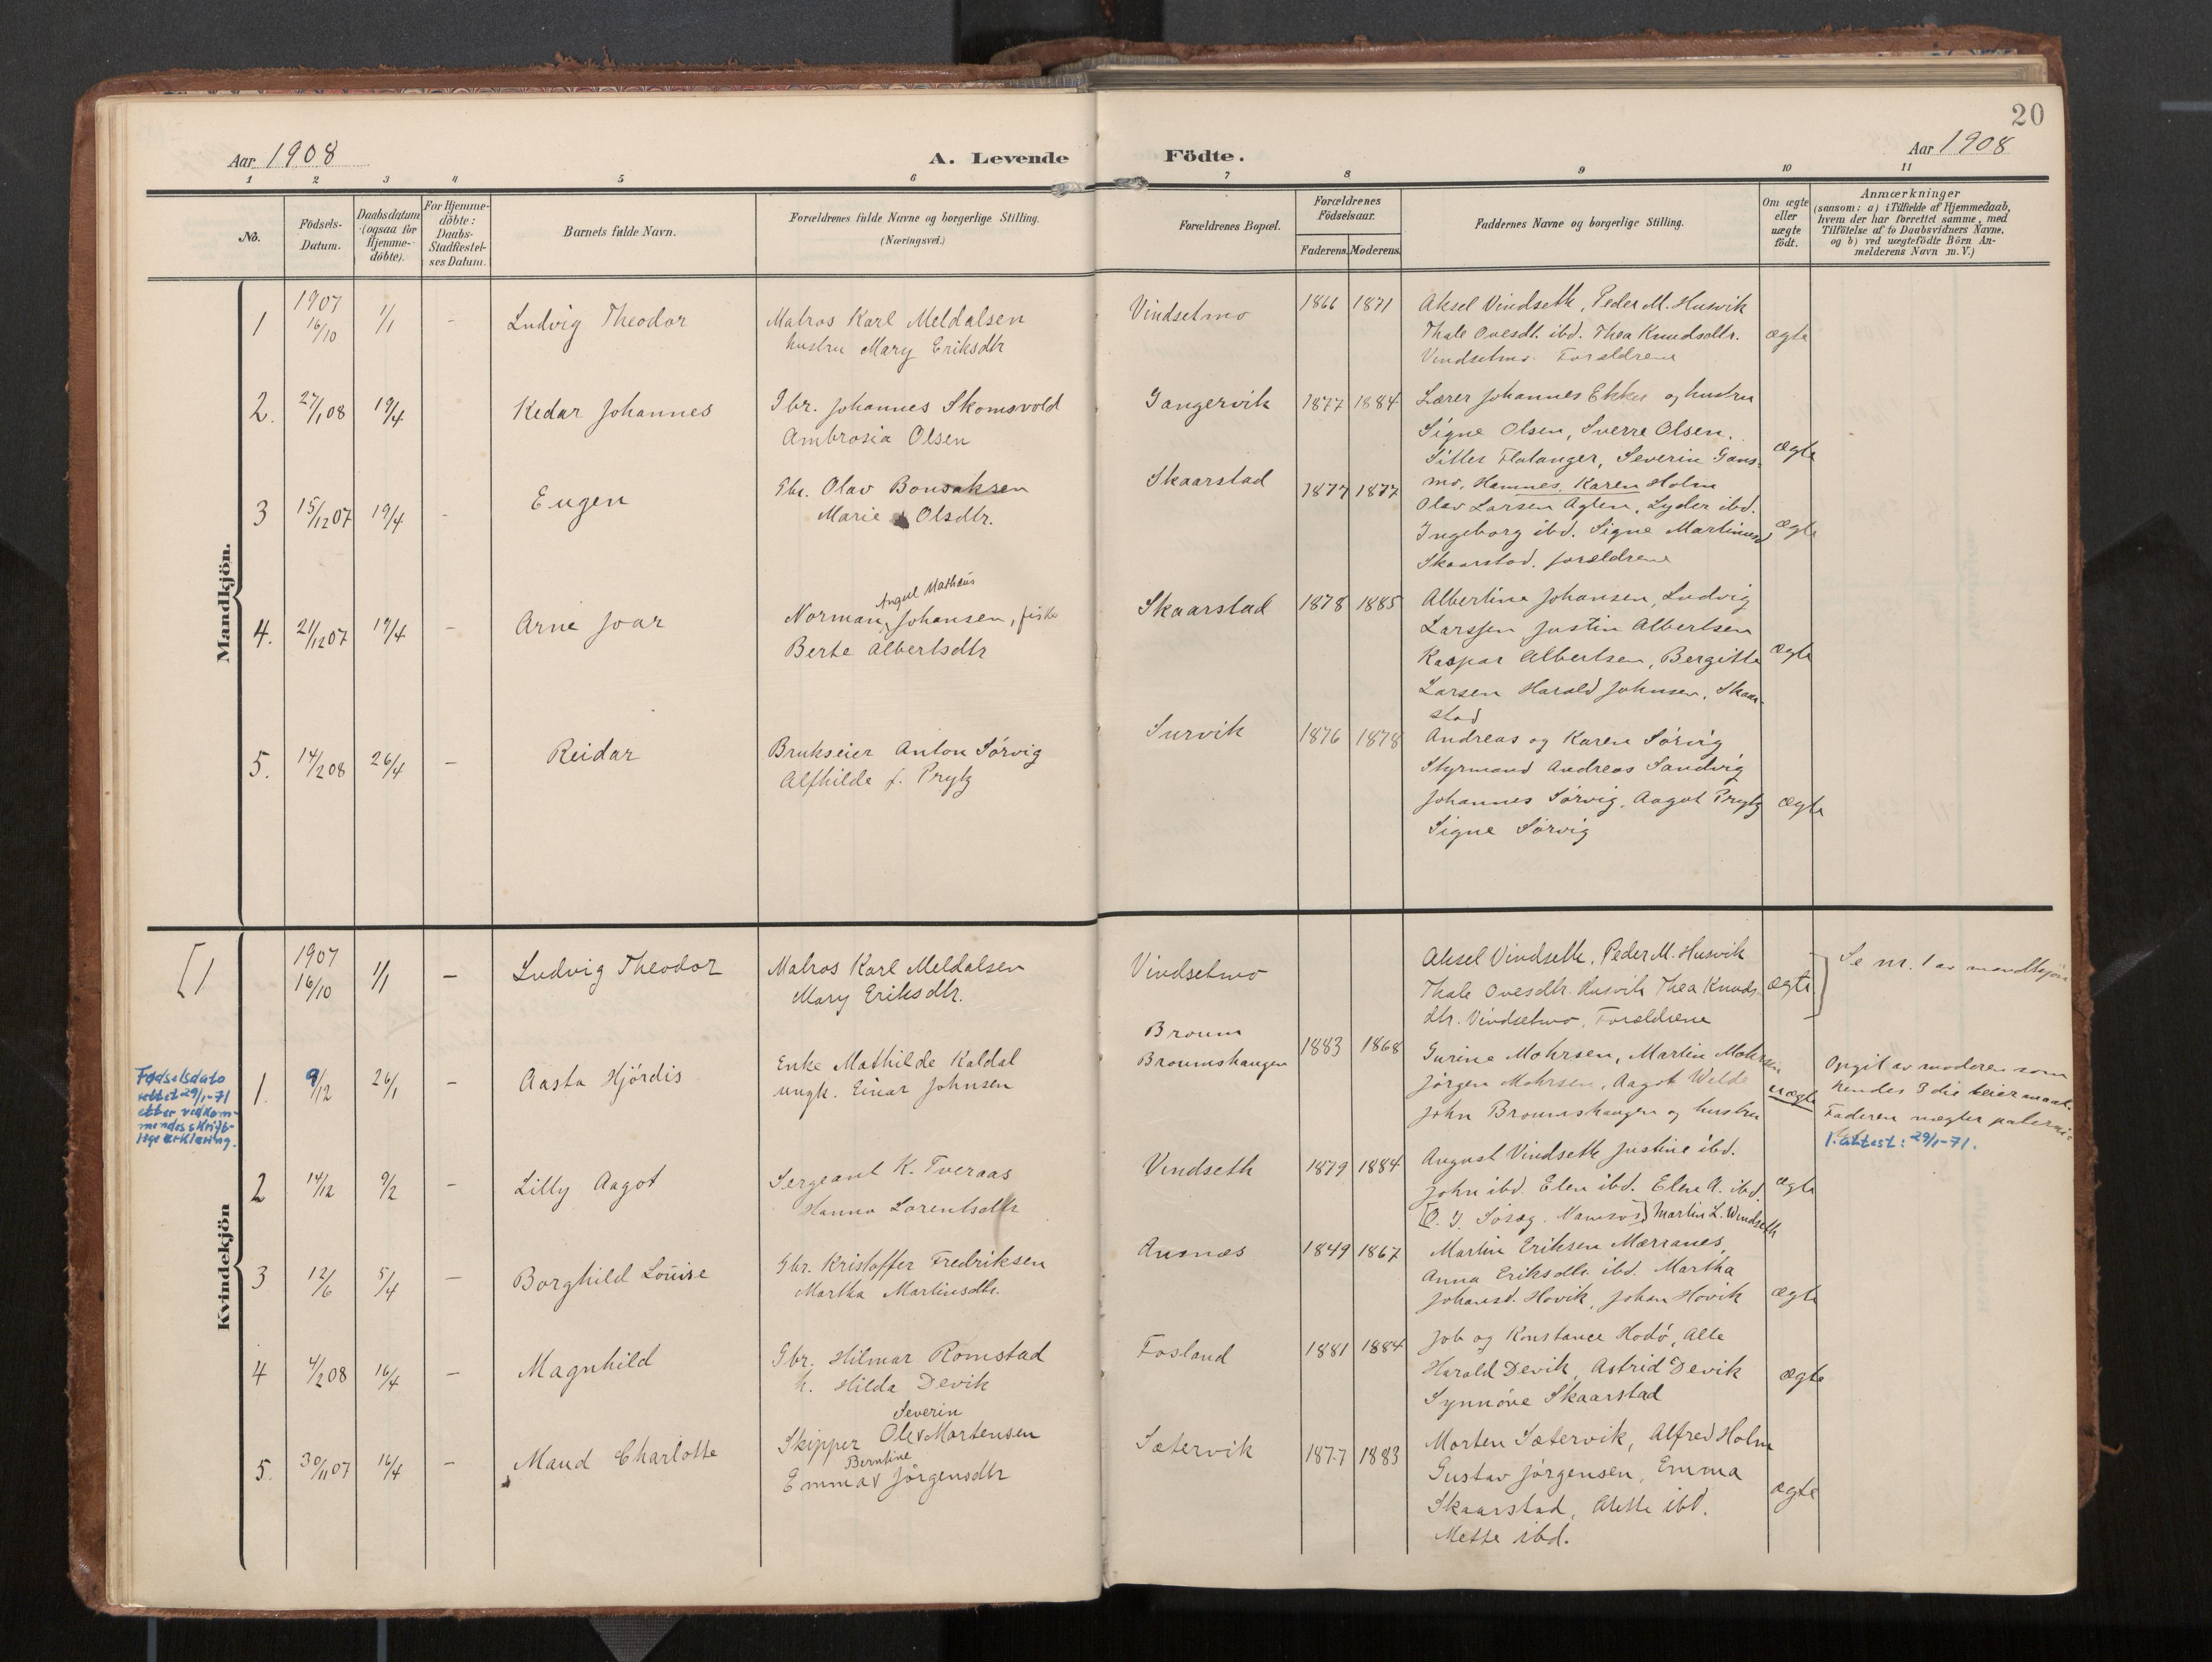 20
Aar 1908
A. Levende Födte.
Aar 1908
1 2 3 4 5 6 7 8 9 10 11
No.
Födsels-Datum.
Daabsdatum (ogsaa for Hjemme-döbte).
For Hjemme-döbte: Daabs-Stadfæstel-ses Datum.
Barnets fulde Navn.
Forældrenes fulde Navne og borgerlige Stilling.
(Næringsvei.)
Forældrenes Bopæl.
Forældrenes Födselsaar.
Faderens. Moderens.
Faddernes Navne og borgerlige Stilling.
Om ægte eller uægte födt.
Anmærkninger
(saasom: a) i Tilfælde af Hjemmedaab,
hvem der har forrettet samme, med
Tilföielse af to Daabsvidners Navne,
og b) ved uægtefödte Börn An-
melderens Navn m. V.)
Mandkjön.
1 1907 16/10 1/1 - Ludvig Theodor
Matros Karl Meldalsen
hustru Mary Eriksdtr
Vindsetmo 1866 1871
Aksel Vindseth, Peder M. Husvik
Thale Ovesdt. ibd. Thea Knudsdtr.
Vindsetmo. Forældrene
ægte
2. 27/1 08 19/4 - Kedar Johannes
Gbr. Johannes Skomsvold
Ambrosia Olsen
Gangervik 1877 1884
Lærer Johannes Ekker og hustru
Signe Olsen, Sverre Olsen.
Flatanger, Severin Gans-
mo, Hamnes, Karen Holm
ægte
3 15/12 07 19/4 - Eugen
Gbr. Olav Bonsaksen
Marie Olsdtr.
Skaarstad 1877 1877
Olav Larsen Agten, Lyder ibd.
Ingeborg ibd. Signe Martinusd
Skaarstad. forældrene
ægte
4. 21/12 07 19/4 - Arne Joar
Angel Mathæus
Norman Johansen, fisker
Berte Albertsdtr
Skaarstad 1878 1885
Albertine Johansen, Ludvig
Larssen Justin Albertsen
Kaspar Albertsen, Bergitte
Larsen Harald Johnsen, Skaar-
stad
ægte
5. 14/2 08 26/4 - Reidar
Brukseier Anton Sörvig
Alfhilde f. Prytz
Survik 1876 1878
Andreas og Karen Sörvig
Styrmand Andreas Sandvig
Johannes Sörvig, Aagot Prytz
Signe Sörvig
ægte
Kvindekjön
[1 1907 16/10 1/1 - Ludvig Theodor
Matros Karl Meldalsen
Mary Eriksdtr.
Vindsetmo
Aksel Vindseth, Peder M. Husvik
Thale Ovesdtr. Husvik Thea Knuds-
dtr. Vindsetmo, Forældrene
ægte.
Se nr. 1 av mandkjön
Fødselsdato
rettet 29/1-71
etter vedkom-
mendes skrift-
lige erklæring.
1. 9/12 26/1 - Aasta Hjördis
Enke Mathilde Kaldal
ungk. Einar Johnsen
Broum
Broumshaugen 1883 1868
Gurine Mohrsen, Martin Mohrsen
Jörgen Mohrsen, Aagot Welde
John Broumshaugen og hustru
uægte
Opgit av moderen som
hendes 3die leiermaal.
Faderen nægter paterni-
1. attest: 29/1-71.
2 14/12 9/2 - Lilly Aagot
Sergeant K. Tveraas
Hanna Lorentsdtr
Vindseth 1879 1884
August Vindseth Justine ibd.
John ibd. Elen ibd. Elen A. ibd.
[O. J. Namsos] Martin L. Windseth
ægte
3 12/6 5/4 - Borghild Louise
Gbr. Kristoffer Fredriksen
Martha Martinsdtr.
Ausnæs 1849 1867
Martin Eriksen Mærranes,
Anna Eriksdtr. ibd. Martha
Johansd. Hovik, Johan Hovik
ægte
4 4/2 08 16/4 - Magnhild
Gbr. Hilmar Romstad
h. Hilda Devik
Fosland 1881 1884
Job og Konstance Hodö, Alle
Harald Devik, Astrid Devik
Synnöve Skaarstad
ægte
5. 30/11 07 16/4 - Maud Charlotte
Severin
Skipper Ole Mortensen
Berntine
Emma Jörgensdtr
Sætervik 1877 1883
Morten Sætervik, Alfred Holm
Gustav Jörgensen, Emma
Skaarstad, Alette ibd.
Mette ibd.
ægte